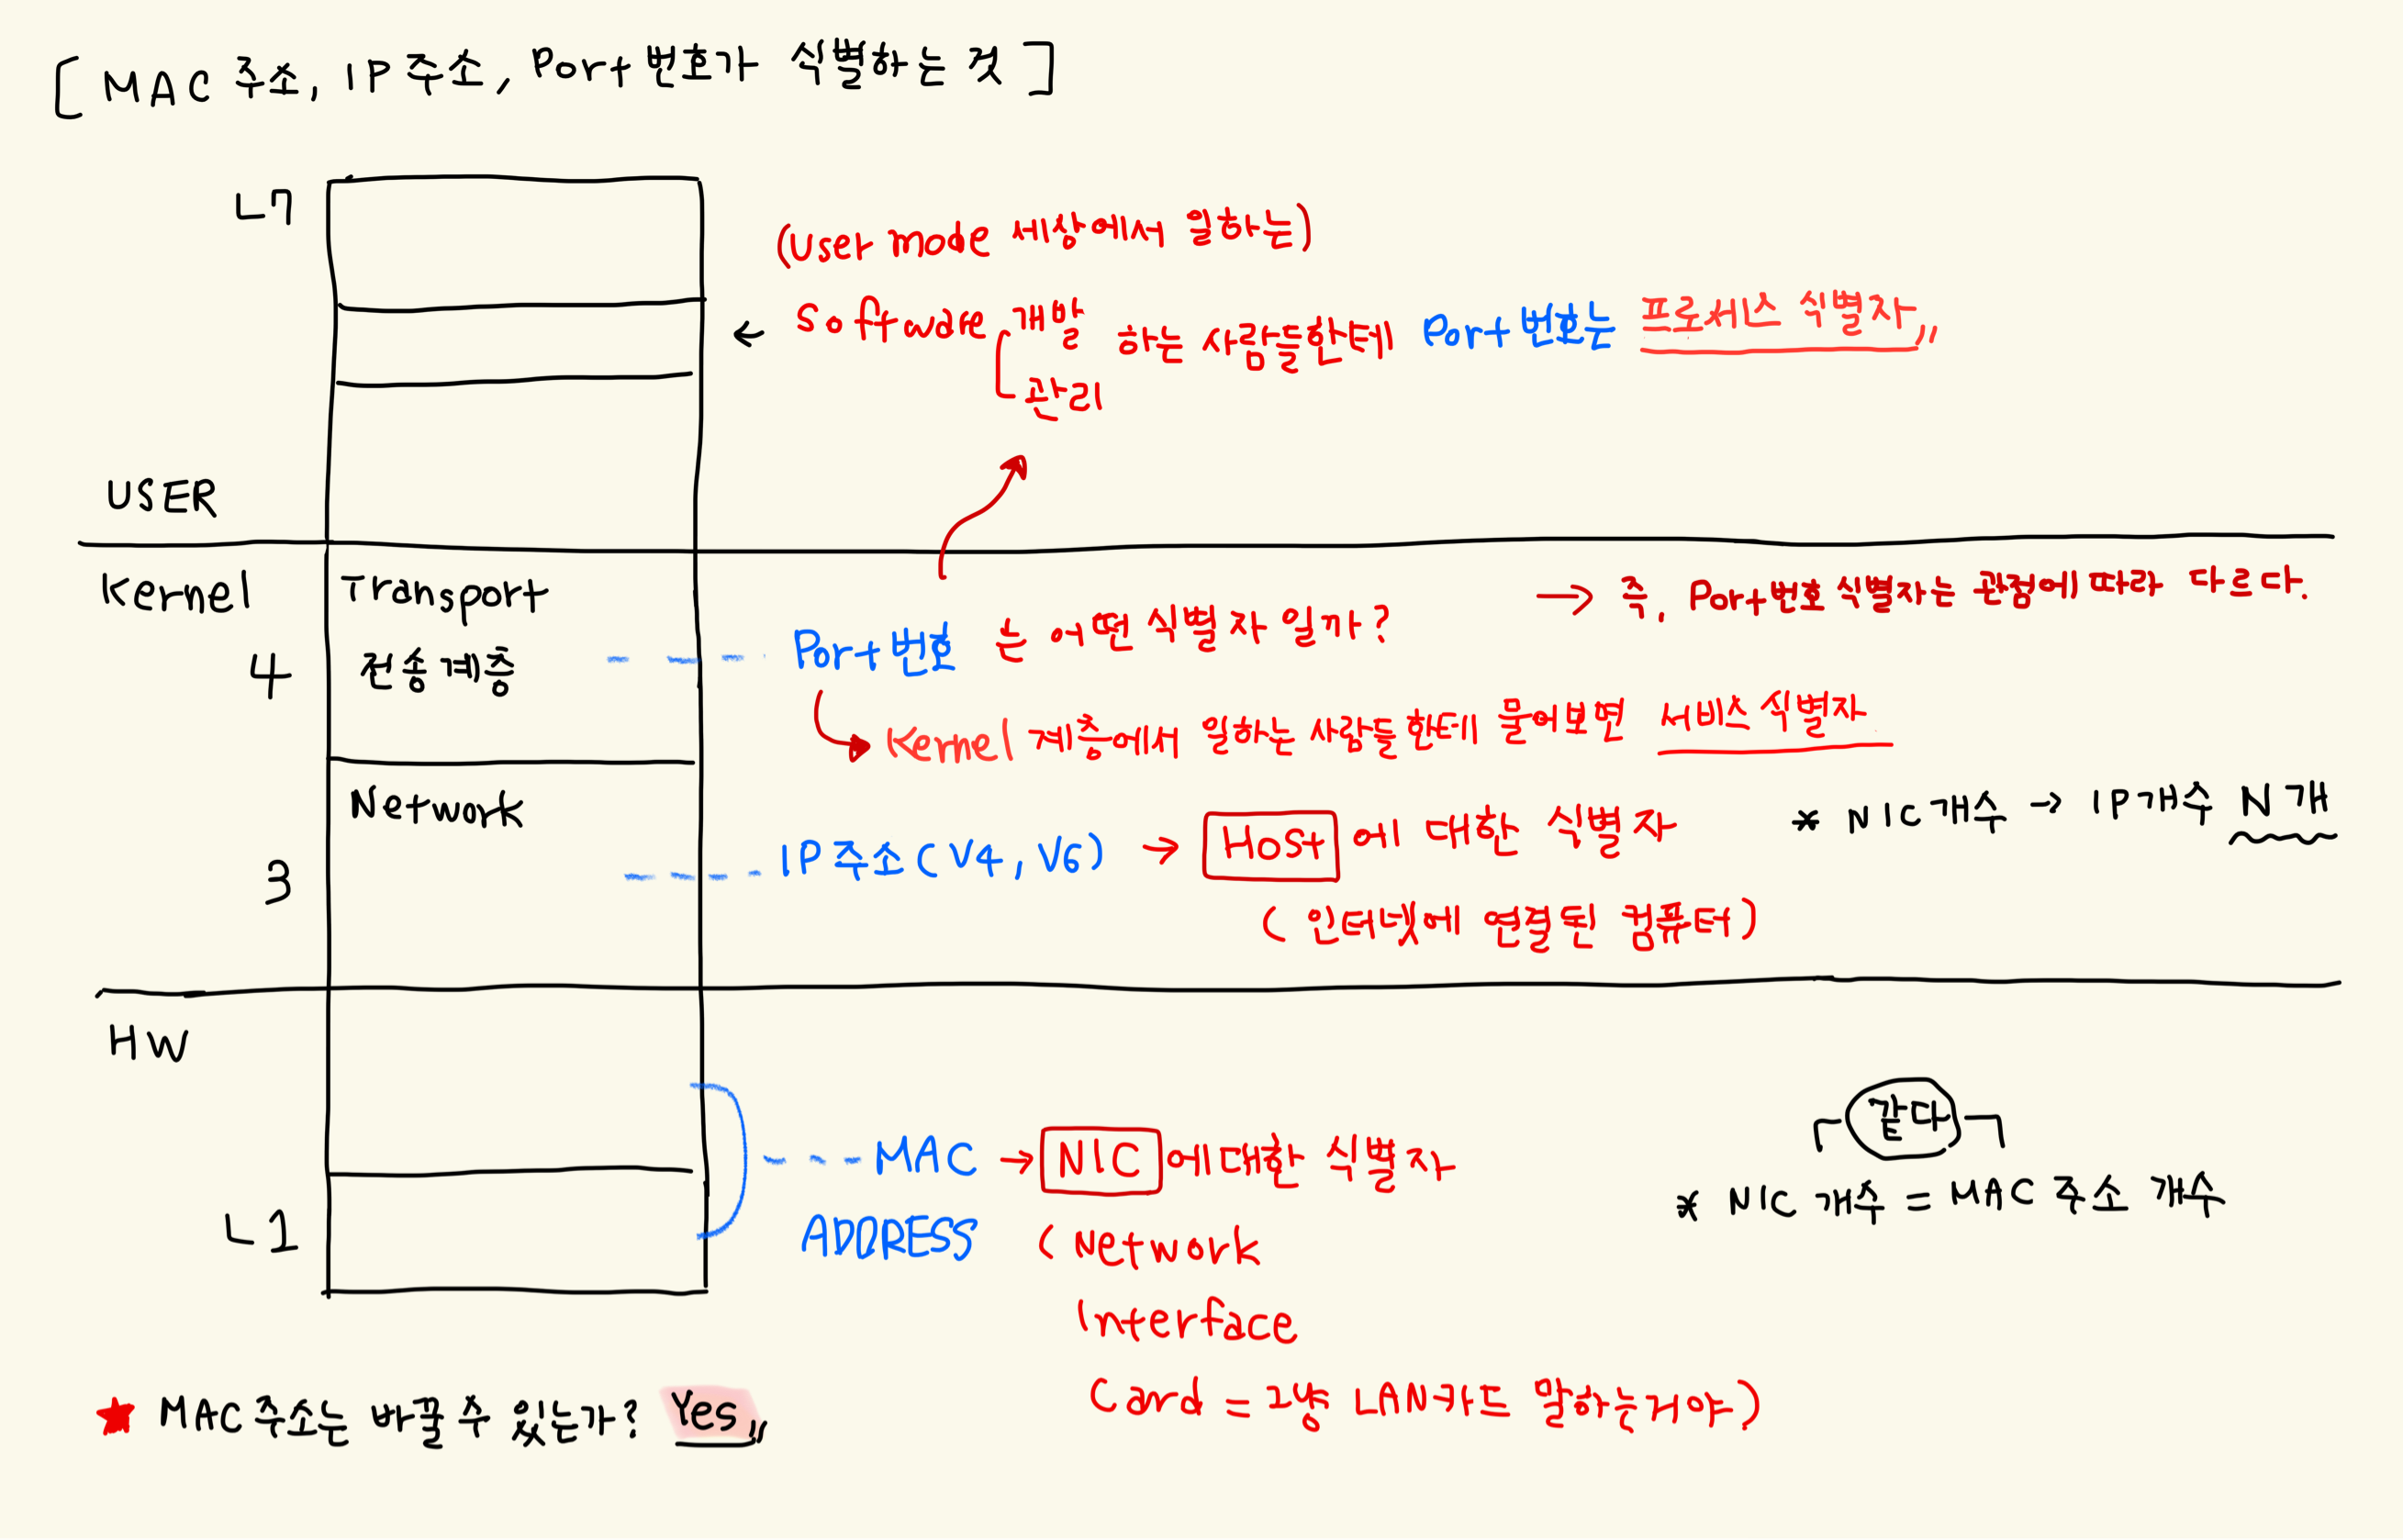 [ MAC 주소, IP 주소, Port 번호가 식별하는 것 ]
L7
(User mode 세상에서 일하는)
← Software 개발 하는 사람들한테 Port 번호는 프로세스 식별자,,
관리
USER
Kernel
Transport
→ 즉, Port 번호 식별자는 관점에 따라 다르다.
4
전송계층
Port 번호 는 어떤 식별자 일까?
Kernel 계층에서 일하는 사람들한테 물어보면 서비스 식별자
Network
* NIC 개수 → IP 개수 N 개
3
IP 주소 (V4, V6) → Host 에 대한 식별자
( 인터넷에 연결된 컴퓨터 )
HW
같다
MAC → NIC 에 대한 식별자
* NIC 개수 = MAC 주소 개수
L1
ADDRESS
( Network
Interface
Card = 그냥 LAN카드 말하는거야 )
★ MAC 주소는 바꿀 수 있는가? Yes,,